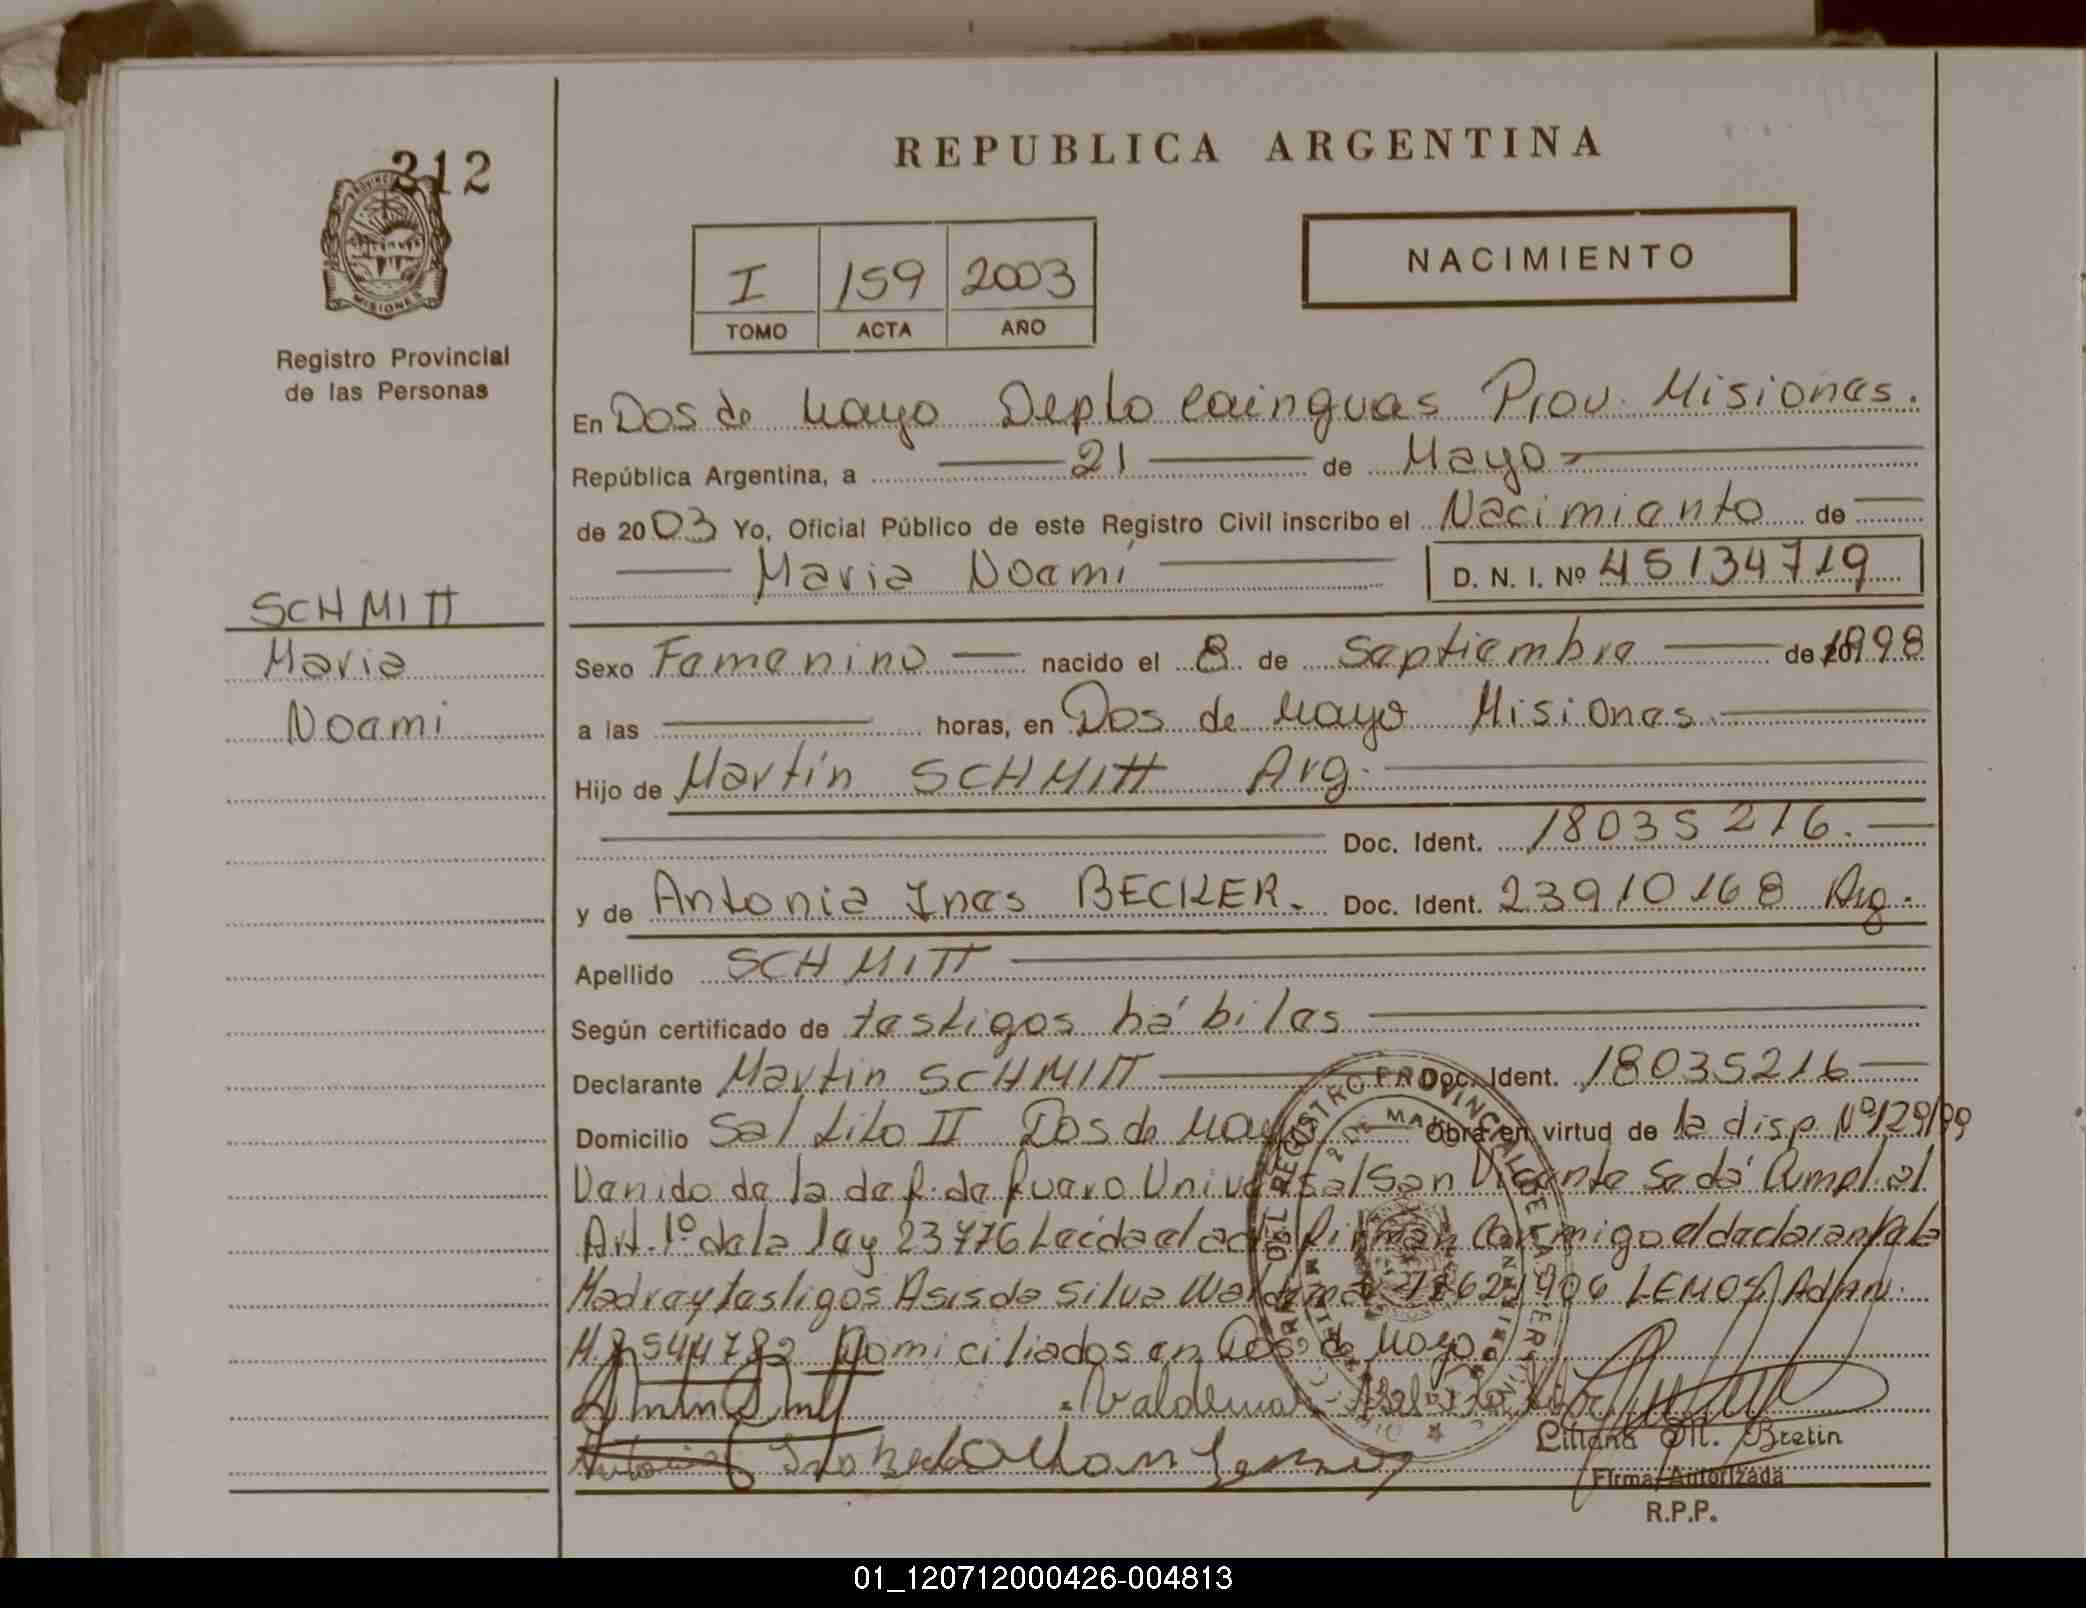 REPUBLICA ARGENTINA
212
PROVINCIA
MISIONES
Registro Provincial
de las Personas
NACIMIENTO
I 159 2003
TOMO ACTA AÑO
En Dos de Mayo Depto Cainguas Prov. Misiones.
República Argentina, a 21 de Mayo
de 2003 Yo, Oficial Público de este Registro Civil inscribo el Nacimiento de
Maria Noemi D. N. I. Nº 45134719
SCHMITT
Maria
Noemi
Sexo Femenino nacido el 8 de Septiembre de 1998
a las horas, en Dos de Mayo Misiones
Hijo de Martín SCHMITT Arg.
Doc. Ident. 18035216.
y de Antonia Ines BECKER. Doc. Ident. 23910168 Arg.
Apellido SCHMITT
Según certificado de testigos hábiles
Declarante Martin SCHMITT Doc. Ident. 18035216
Domicilio Saltito II Dos de Mayo Obra en virtud de la disp Nº 129/99
Venido de la def. de fuero Universal San Vicente Se dá Cumpl. al
Art. 1º de la ley 23776 Leída el acta firman Conmigo el declarante la
Madre y testigos Asis de Silva Waldemar LEMOS Adan
M. 8544782 Domiciliados en Dos de Mayo
Valdemar
Liliana M. Bretin
Firma Autorizada
R.P.P.
01_120712000426-004813